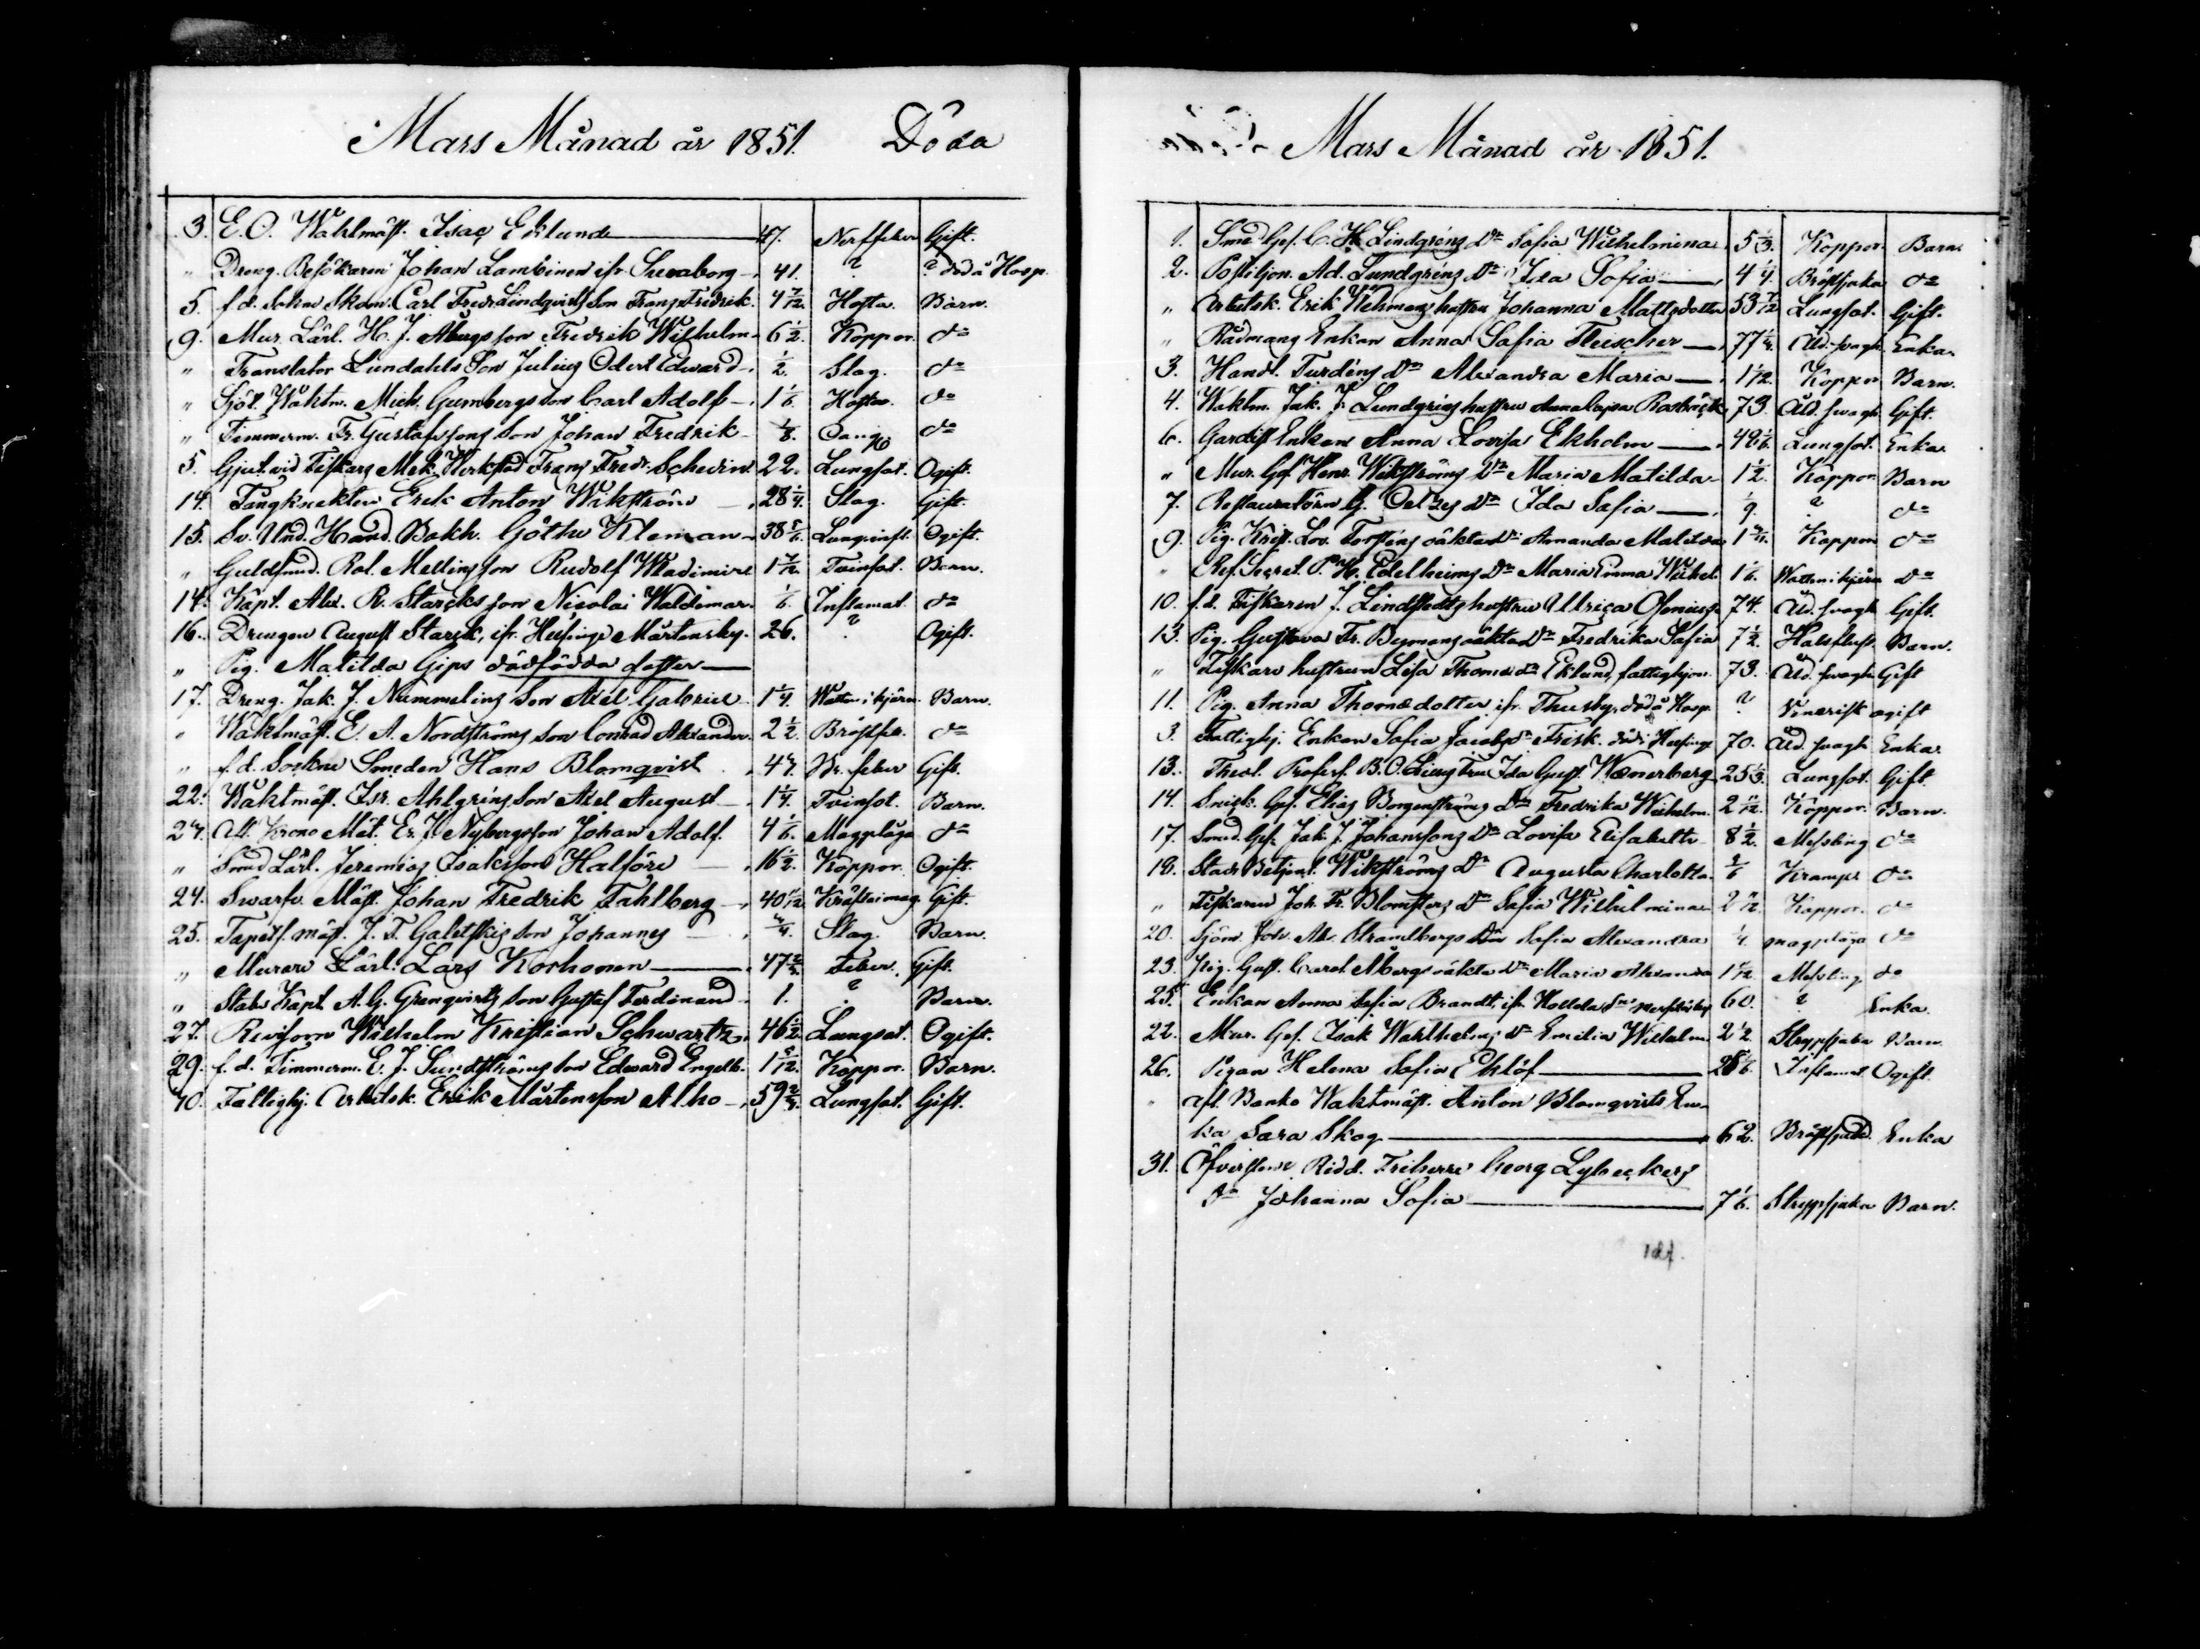 Mars Månad år 1851. Döda
3. E. O. Waktmäst. Isac Eklund 47. Nerffeber Gift.
" Dreng. Besökaren Johan Lambinen ifr. Sveaborg 41. ? ? död å Hosp.
5. f. d. Sokne Skom. Carl Fredr. Lindqvists Son Franz Fredrik. 4 7/12. Hosta. Barn.
9. Mur. Lärl. H. J. Åbergs son Fredrik Wilhelm 6 1/2. Koppor. do
" Translator Lundahls Son Julius Odert Edward 1/2. Slag. do
" Sjöt. Waktm. Mich. Gumbergs son Carl Adolf 1 1/6. Hosta. do
" Timmerm. Fr. Gustafssons Son Johan Fredrik 1/8. do
5. Gjut. vid Fiskars Mek. Werkstad Franz Fredr. Schevin 22. Lungsot. Ogift.
14. Fångknekten Erik Anton Wikström 28 1/4. Slag. Gift.
15. Sv. Und. Hand. Bokh. Göthe Kleman 38 5/6. Lunginfl. Ogift.
" Guldsmed. Rol. Mellins son Rudolf Wladimir 1 7/12. Tvinsot. Barn.
14. Kapt. Alex. R. Starcks son Nicolai Waldemar. 1/6. Inflamat. do
16. Drengen August Starck, ifr. Helsinge Mårtensby. 26. ? Ogift.
" Pig. Matilda Gips dödfödda dotter
17. Dreng. Jak. J. Nummelins Son Axel Gabriel 1 1/4. Watten i hjärn. Barn.
" Waktmäst. E. A. Nordströms son Conrad Alexander. 2 1/2. Bröstfe. do
" f. d. Sokne Smeden Hans Blomqvist 47. Nr. feber Gift.
22. Waktmäst. Isr. Ahlgrens Son Axel August 1 1/4. Tvinsot. Barn.
24. Aft. Krono Måt. Er. J. Nybergs son Johan Adolf. 4 1/6. Magplåga do
" Smed Lärl. Jeremias Isaksson Halföre 16 1/2. Koppor. Ogift.
24. Swarfv. Mäst. Johan Fredrik Fahlberg 40 11/12. Kräfta i mag. Gift.
25. Tapets. mäst. J. F. Galetskis Son Johannes 3/4. Slag. Barn.
" Murare Lärl. Lars Korhonen 47 2/3. Feber. Gift.
" Stabs Kapt. A. G. Granqvists Son Gustaf Ferdinand 1. ? Barn.
27. Revisorn Wilhelm Kristian Schwartz. 46 1/2. Lungsot. Ogift.
29. f. d. Timmerm. E. J. Sundströms son Edward Engelb. 1 5/12. Koppor. Barn.
10. Fattighj. Arbetsk. Erik Mårtensson Alho 59 2/3. Lungsot. Gift.
Mars Månad år 1851.
1. Smed Ges. C. H. Lindgrens Dr Sofia Wilhelmina 5 1/3. Koppor Barn.
2. Postiljon. Ad. Lundgrens Dr Ida Sofia 4 1/4. Bröstsjuka do
" Arbetsk. Erik Wehmans hustru Johanna Mattsdotter 53 7/12 Lungsot. Gift.
" Rådmans Enkan Anna Sofia Fleischer 77 1/4. Åld. svagh. Enka.
3. Handl. Turdéns Dr Alexandra Maria 1 1/12. Koppor Barn.
4. Waktm. Jak. J. Lundgrens hustru Anna Cajsa 73. Åld. svagh Gift.
6. Gardist Enkan Anna Lovisa Ekholm 42 1/6. Lungsot. Enka.
" Mur. Ges. Henr. Wikströms Dr Maria Matilda 1 1/2. Koppor Barn
7. Restauratören G. Oelzes Dr Ida Sofia 1/9. ? do
9. Pig. Krist. Lov. Forssens oäkta Dr Amanda Matilda 1 3/4. Koppor do
" Ref. Secret. P. H. Edelheims Dr Maria Emma Wilhel. 1 1/6. Watten i hjärn do
10. f. d. Fiskaren J. Lindstedts hustru Ullrica Olenius 74. Åld. svagh Gift.
13. Pig. Gustava Fr. Bymans oäkta Dr Fredrika Sofia 7 1/2. Halsfluss. Barn.
" Fiskare hustrun Lisa Thomædr Eklund, fattighjon. 73. Åld. svagh Gift
11. Pig. Anna Thomædotter ifr. Thusby, död å Hosp. ? Venerisk ogift
3. Fattighj. Enkan Sofia Jacobsdr Frisk. död i Helsinge 70. Åld. svagh Enka.
13. Theol. Profess. B. O. Lilles Fru Ida Gust. Wænerberg 25 1/3. Lungsot. Gift.
14. Snick. Ges. Elias Borgenströms Dr Fredrika Wilhelm. 2 11/12. Koppor. Barn.
17. Smed. Ges. Jak. J. Johanssons Dr Lovisa Elisabeth 8 1/2. Messling do
18. Stads Betjent. Wikströms Dr Augusta Charlotta. 5/6 Kramp do
" Fiskaren Joh. Fr. Blomsters Dr Sofia Wilhelmina 2 11/12. Koppor. do
20. Sjöm. Joh. Alx. Strandbergs Dr Sofia Alexandra 1/4. magplåga do
23. Pig. Gust. Carol. Åbergs oäkta Dr Maria Alexandra 1 5/12. Messling do
25. Enkan Anna Sofia Brandt, ifr. Hollola Sn 60. ? Enka
22. Mur. Ges. Isak Wahlbergs Dr Emilia Wilhelm. 2 1/2. Strypsjuka Barn
26. Pigan Helena Sofia Eklöf 28 1/6. Inflamat Ogift.
" Aft. Banko Waktmäst. Anton Blomqvists En-
ka Sara Skog 62. Bröstsjukd. Enka
31. Öfverstens Ridd. Friherre Georg Lybeckers
Dr Johanna Sofia 7 1/6. Strypsjuka Barn.